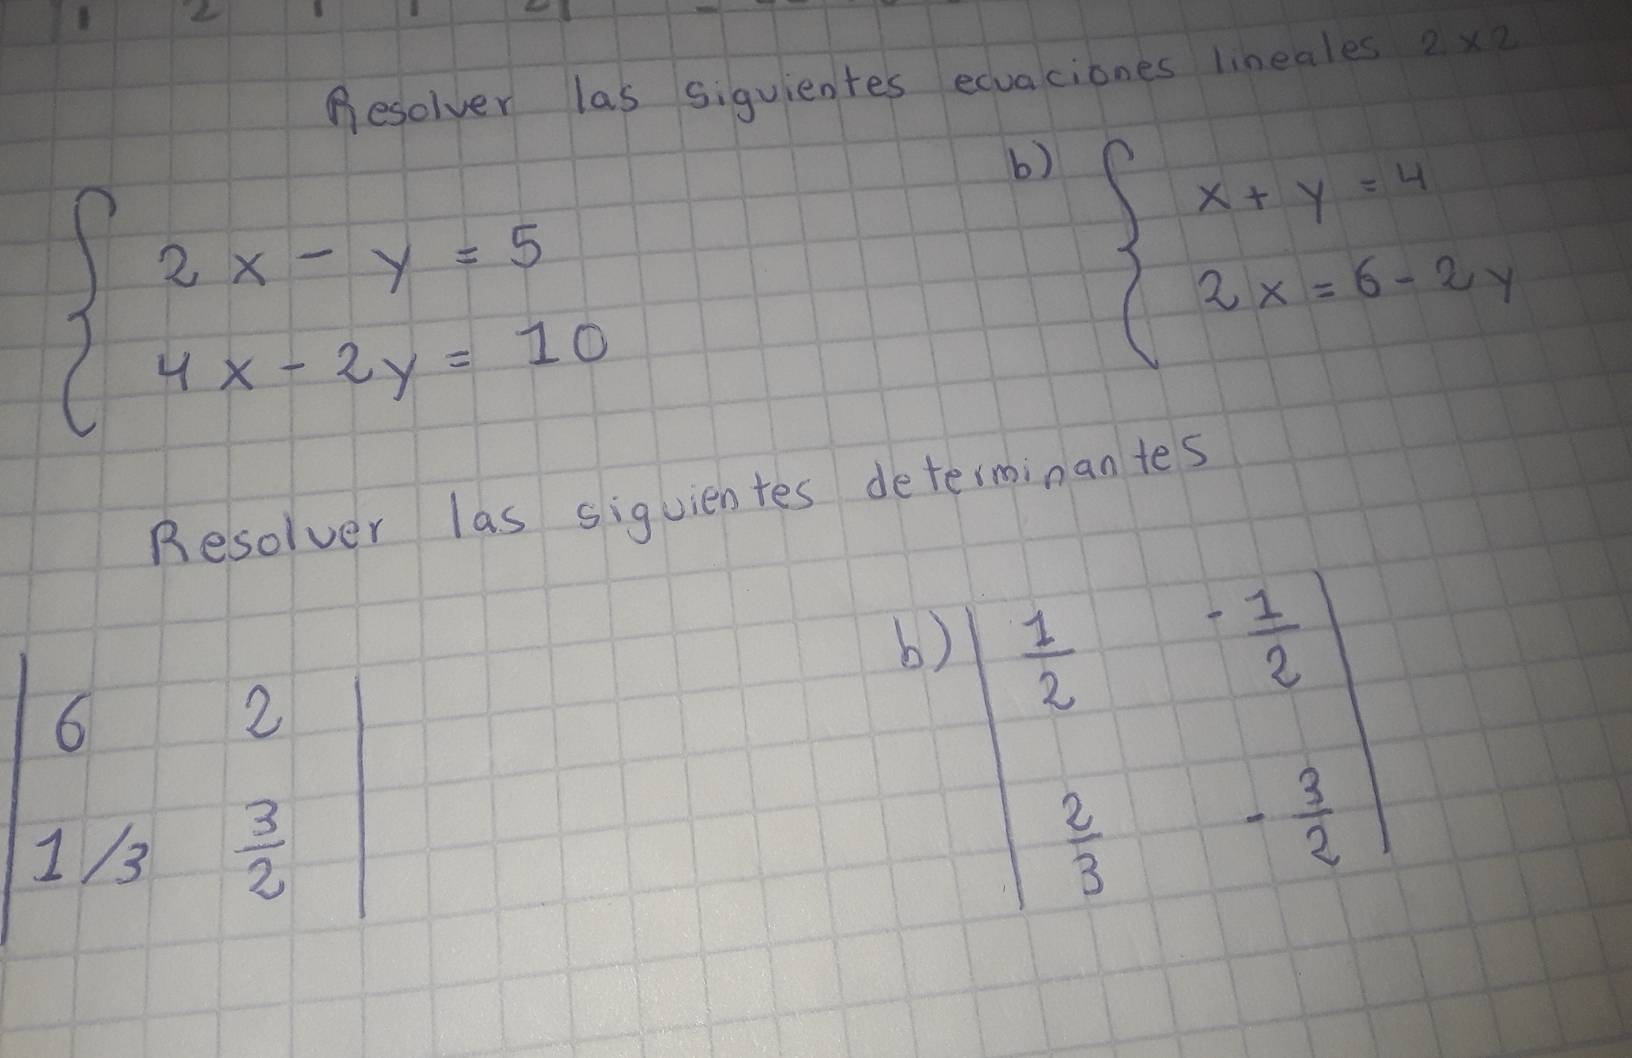 Resolver las siguientes ecuaciones lineales 2x2
b)
2x - y = 5
4x - 2y = 10
x + y = 4
2x = 6 - 2y
Resolver las siguientes determinantes
6 2
1/3 3/2
b) 1/2 -1/2
2/3 -3/2